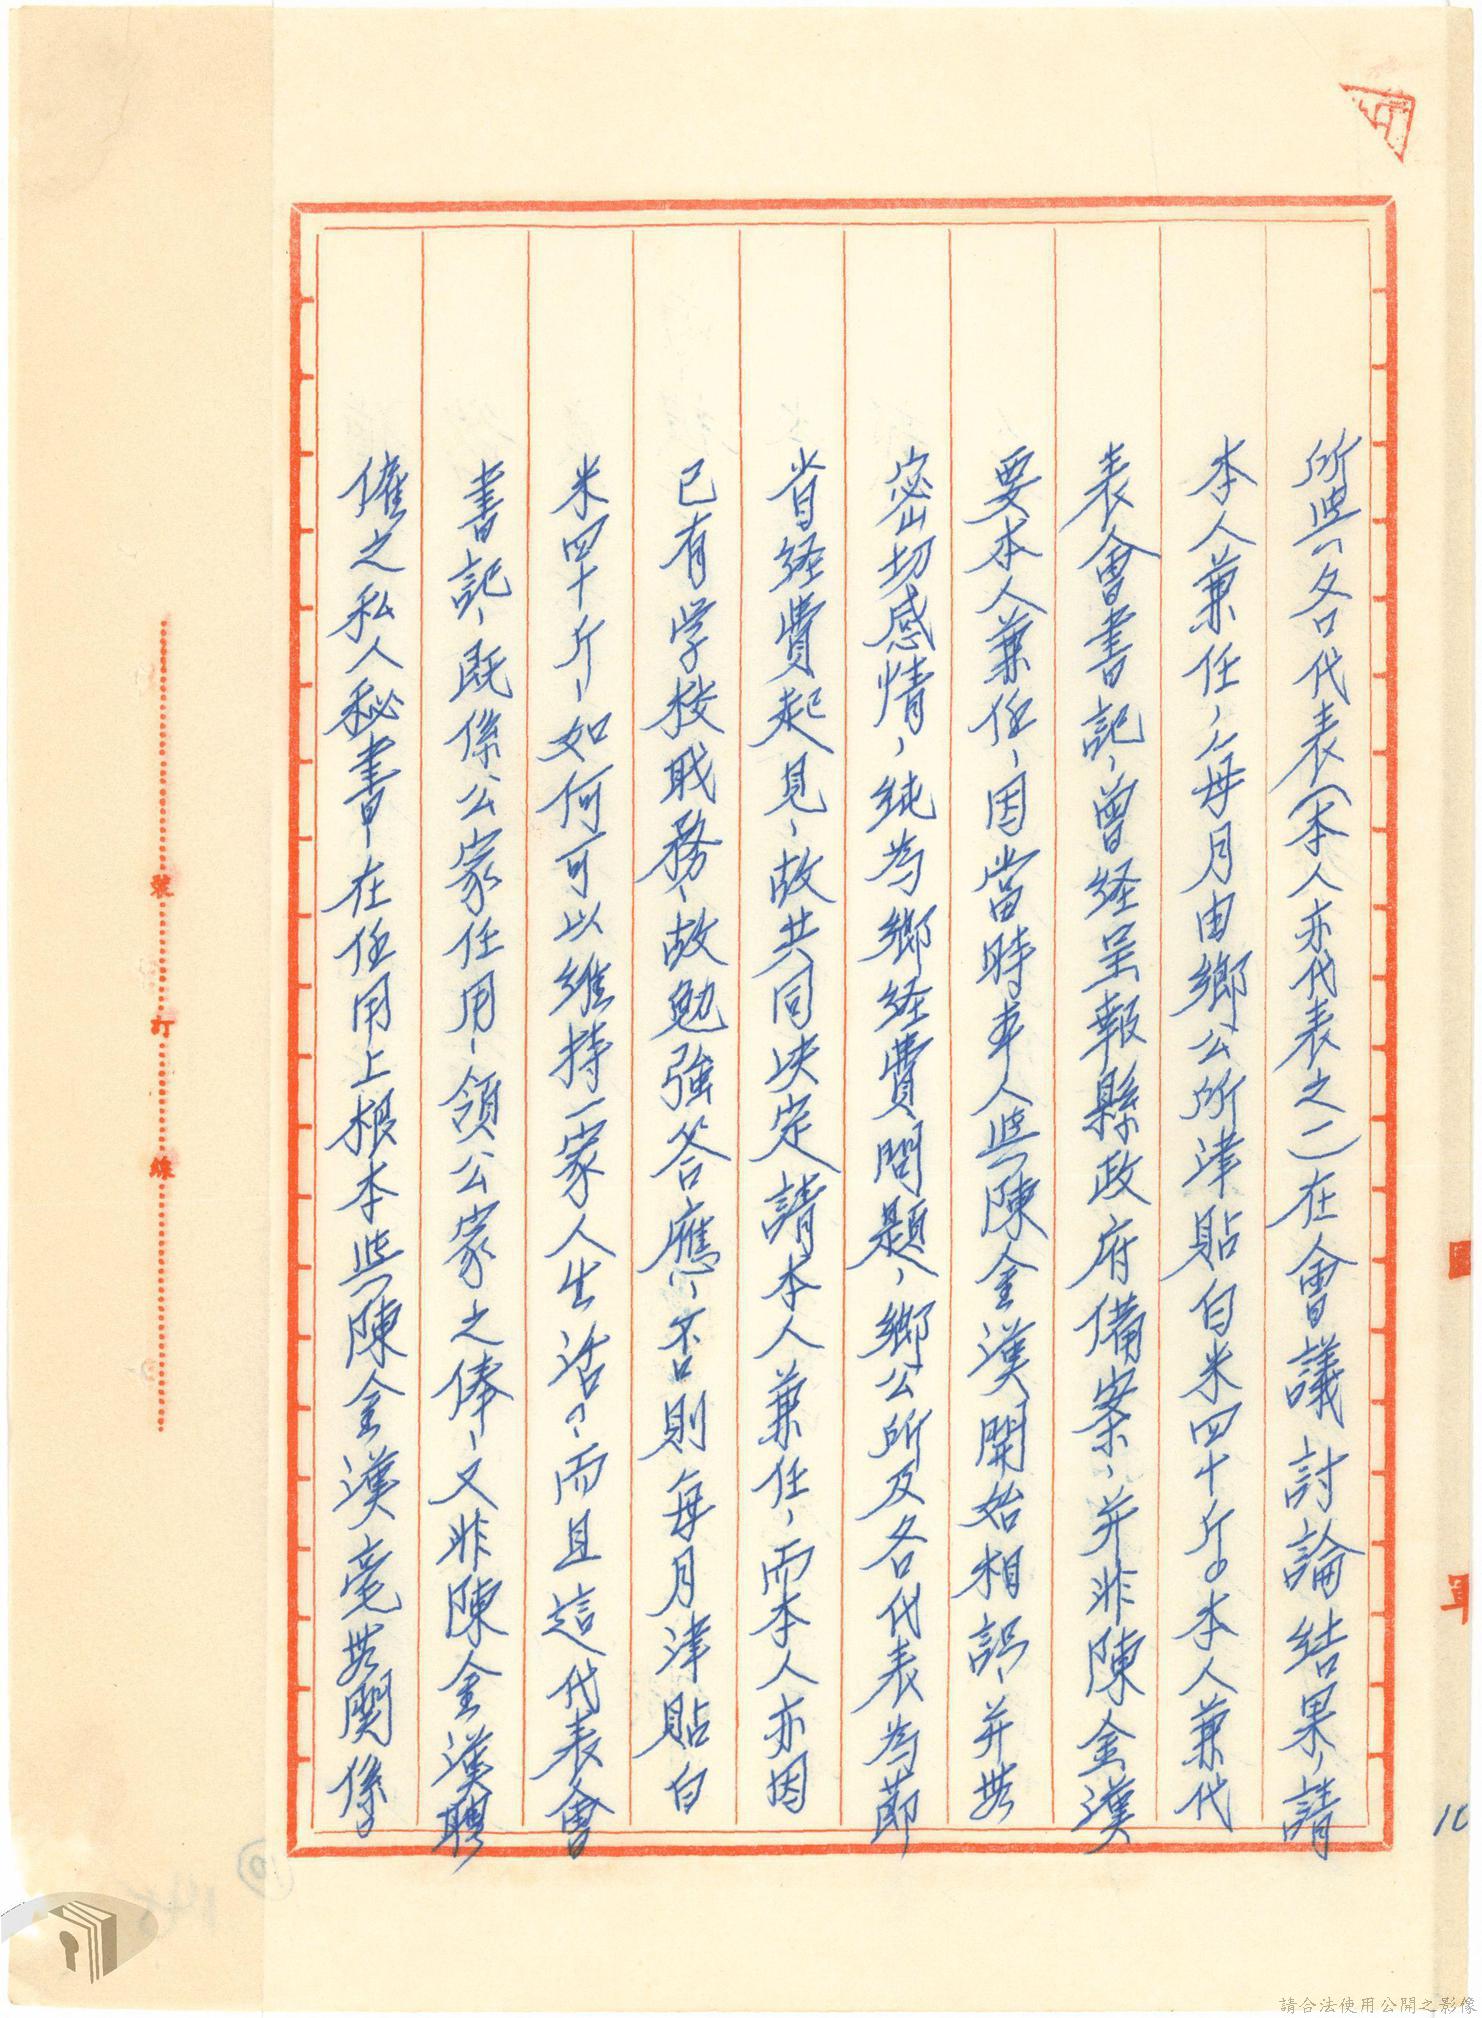 所與各代表(本人亦代表之一)在會議討論結果，請
本人兼任，每月由鄉公所津貼白米四十斤。本人兼代
表會書記，曾経呈報縣政府備案，并非陳金漢
要本人兼任，因當時本人與陳金漢開始相認，并無
密切感情，純為鄉経費問題，鄉公所及各代表為節
省経費起見，故共同決定請本人兼任，而本人亦因
已有学校职務，故勉強答應，否則每月津貼白
米四十斤，如何可以維持一家人生活？而且這代表會
書記，既係公家任用，領公家之俸，又非陳金漢聘
僱之私人秘書，在任用上根本與陳金漢毫無関係
號
打
線
10
請合法使用公開之影像